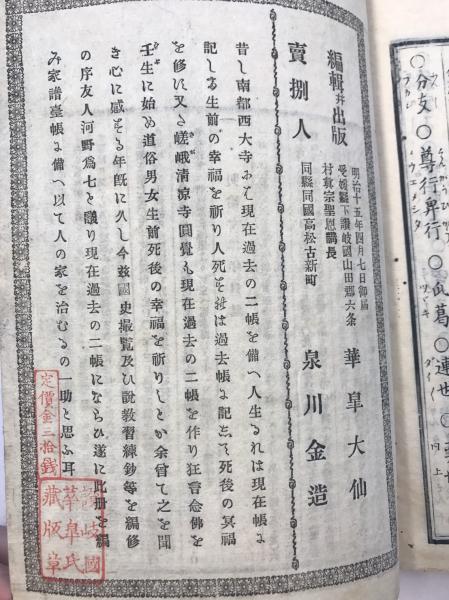 ○分攴○尊行卑行○瓜葛○連世
編輯幷出版
明治十五年四月七日御届
愛媛縣下讃岐國山田郡六条
村眞宗聖恩講長
華皐大仙
賣捌人
同縣同國高松古新町
泉川金造
昔し南都西大寺おゐて現在過去の二帳を備へ人生るれは現在帳よ
記しゝ生前の幸福を祈り人死そは過去帳よ記志て死後の冥福
を修ひ又さ嵯峨清凉寺圓覺も現在過去の二帳を作り狂言念佛を
壬生に始め道俗男女生前死後の幸福を祈りしとか余曾て之を聞
き心に感そる年既に久し今茲國史撮覽及ひ説教習練鈔等を編修
の序友人河野爲七と議り現在過去の二帳にならひ遂に此冊を編
み家譜臺帳よ備へ以て人の家を治むるの一助と思ふ耳
定價金三拾錢
讃岐國
華皐氏
藏版章